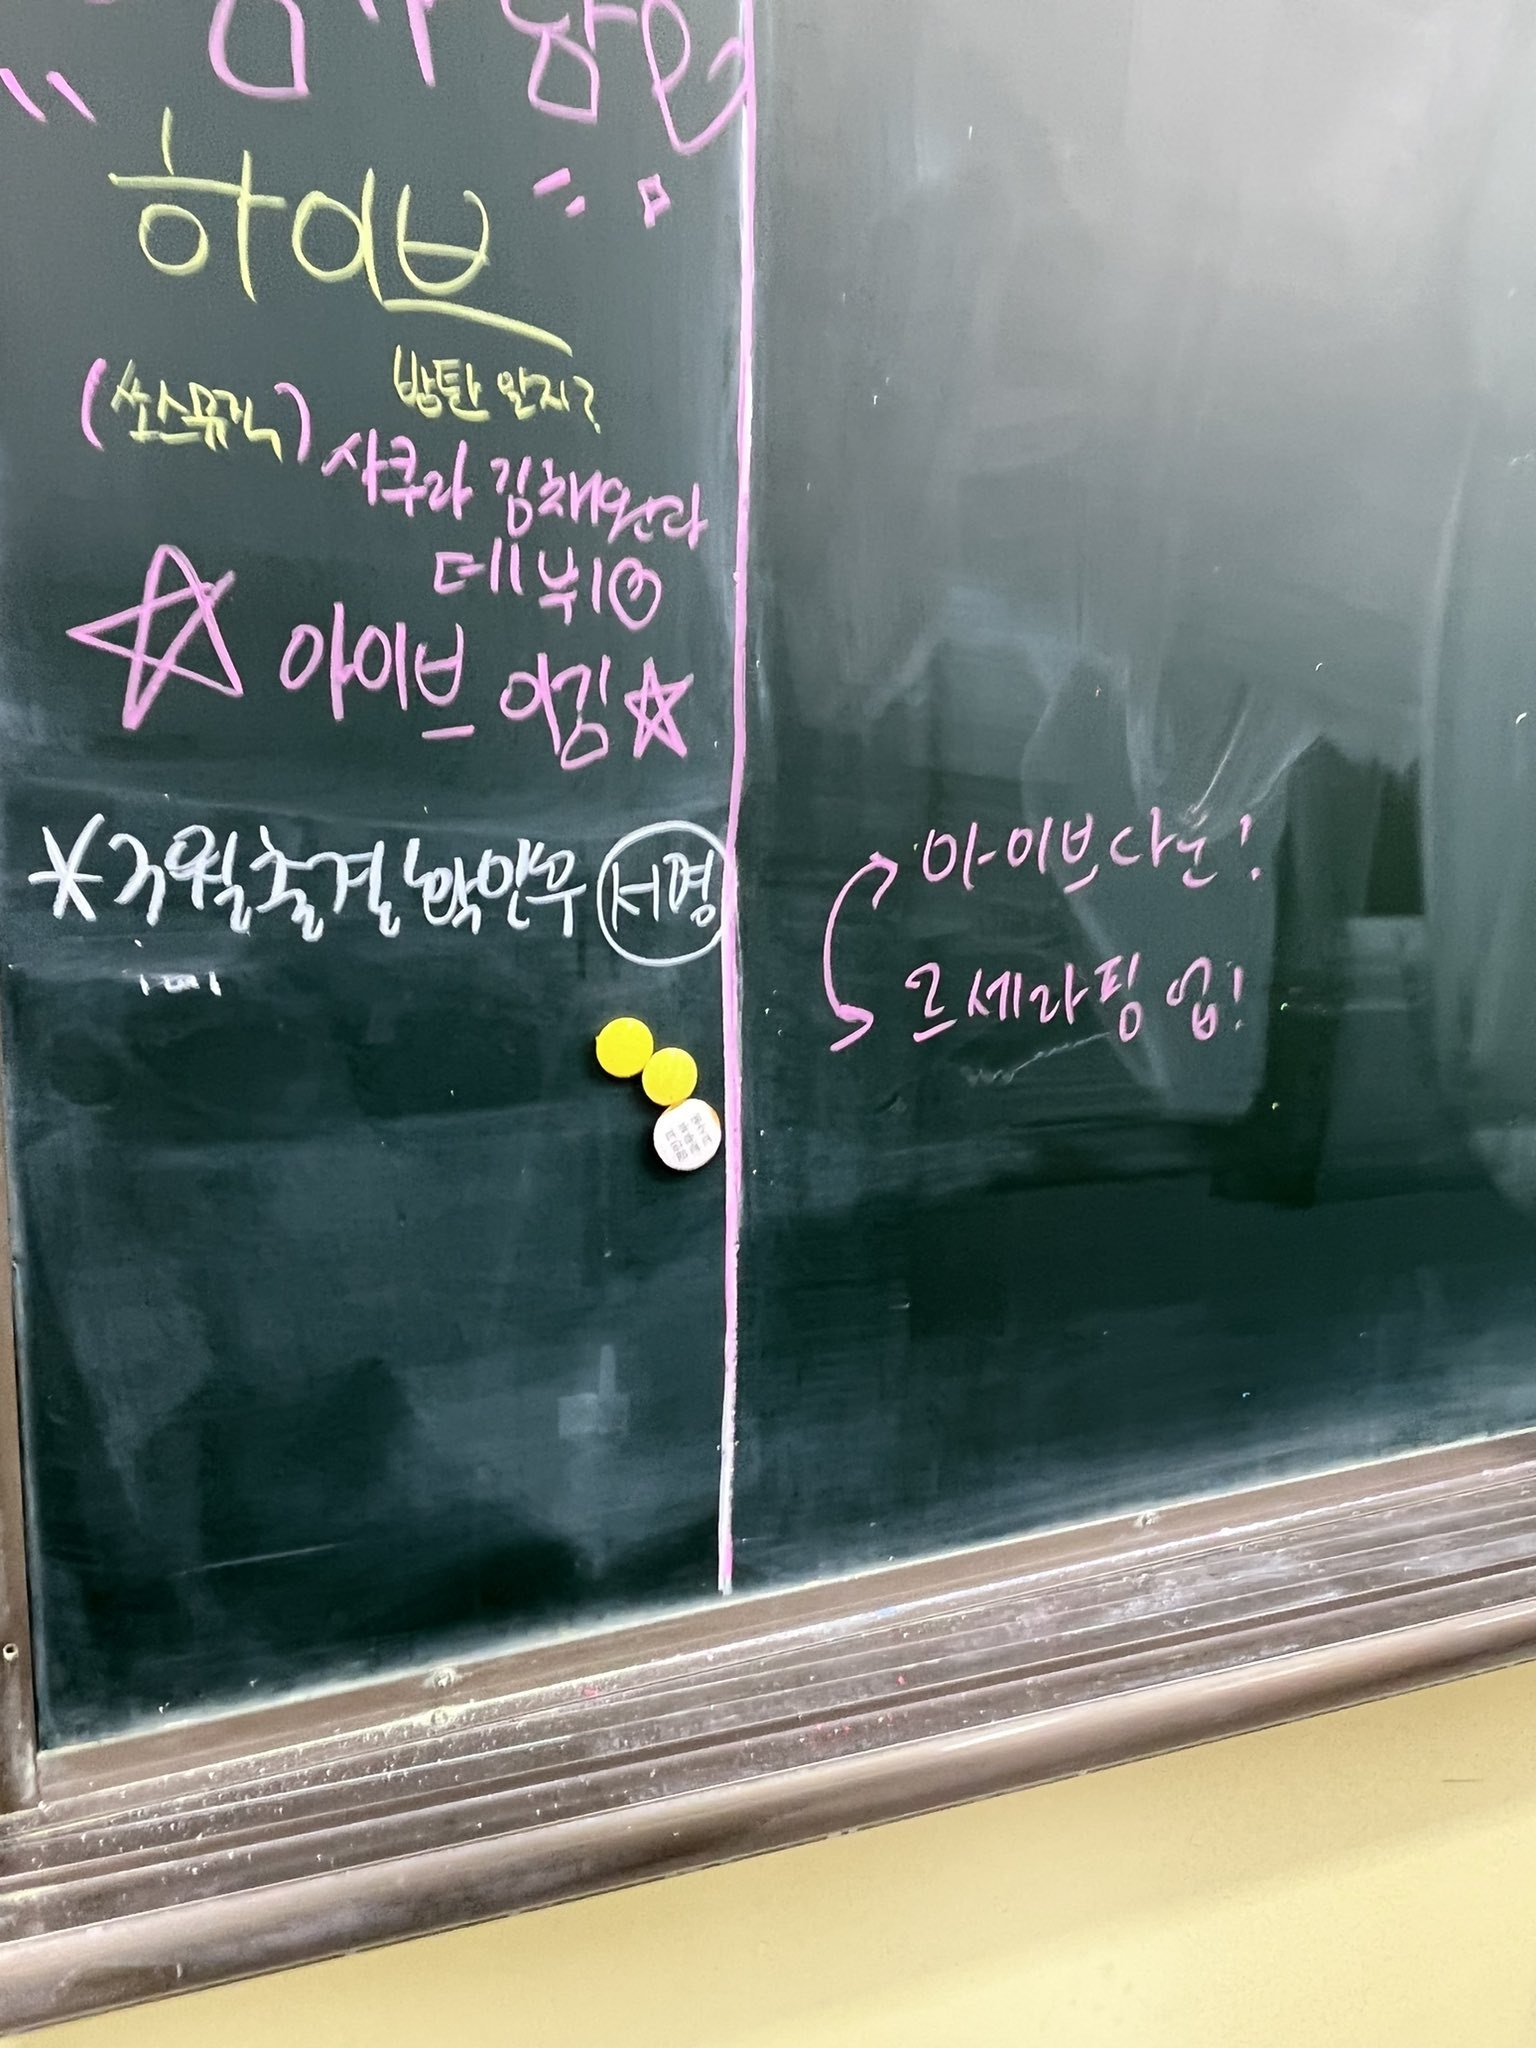 하이브
방탄 알지?
(쏘스뮤직)
사쿠라 김채원이랑
데뷔
아이브 이김
*3월 출결 확인 후 서명
아이브다운!
르세라핌 업!